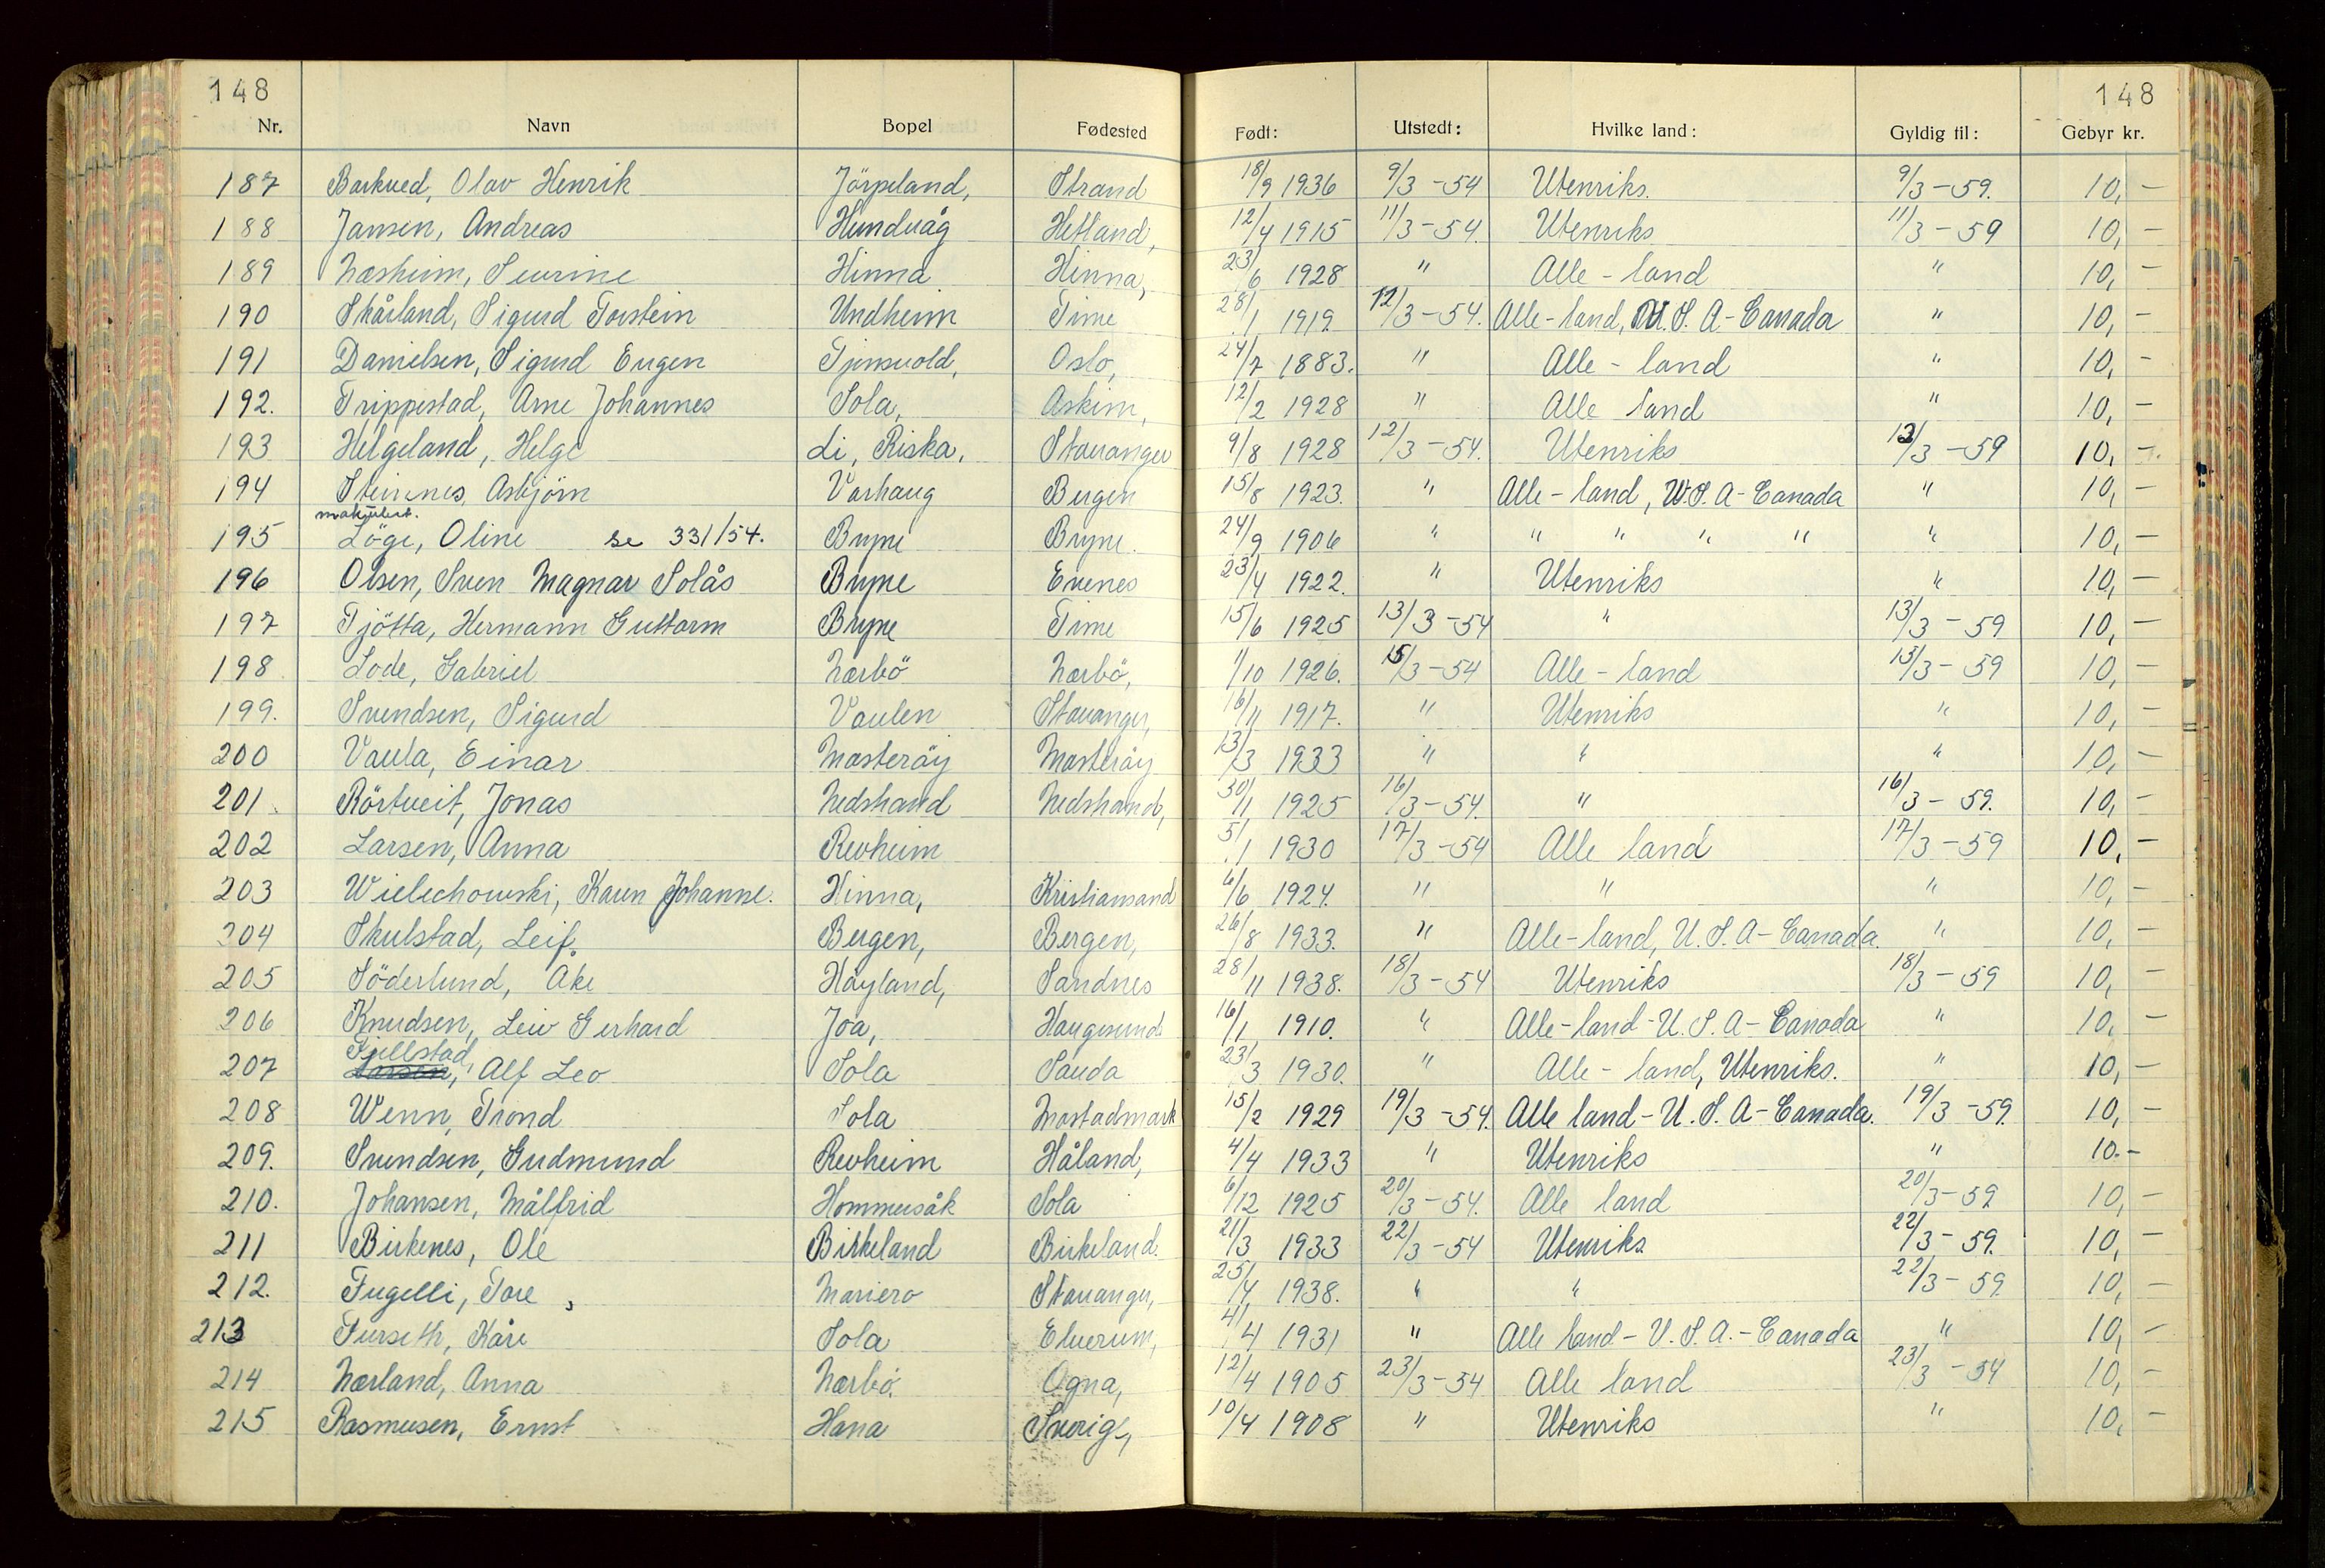 148 148
Nr. Navn Bopel Fødested Født: Utstedt: Hvilke land: Gyldig til: Gebyr kr.
187 Barkved, Olav Henrik Jörpeland, Strand 18/9 1936 9/3-54 Utenriks. 9/3-59. 10,-
188 Jansen, Andreas Hundvåg Hetland, 12/4 1915 11/3-54. Utenriks 11/3-59 10,-
189 Næsheim, Sevrine Hinna Hinna, 23/6 1928 " Alle-land " 10,-
190 Skårland, Sigurd Torstein Undheim Time 28/1 1919. 12/3-54. Alle-land, U.S.A-Canada " 10,-
191 Danielsen, Sigurd Eugen Tjensvold, Oslo, 24/7 1883. " Alle-land " 10,-
192. Trippestad, Arne Johannes Sola, Askim, 12/2 1928 " Alle land " 10,-
193 Helgeland, Helge Li, Riska, Stavanger 9/8 1928 12/3-54. Utenriks 12/3-59 10,-
194 Steinnes, Asbjörn Varhaug Bergen 15/8 1923. " Alle-land, U.S.A-Canada " 10,-
makulert.
195 Löge, Oline se 331/54. Bryne Bryne. 24/9 1906 " " " " " " 10,-
196 Olsen, Sven Magnar Solås Bryne Evenes 23/4 1922. " Utenriks " 10,-
197 Tjötta, Hermann Guttorm Bryne Time 15/6 1925 13/3-54 " 13/3-59 10,-
198 Lode, Gabriel Nærbö Nærbö, 1/10 1926. 15/3-54 Alle-land 15/3-59 10,-
199. Svendsen, Sigurd Vaulen Stavanger, 16/11 1917. " Utenriks " 10,-
200 Vaula, Einar Mosteröy Mosteröy 13/3 1933 " " " 10,-
201. Rörtveit, Jonas Nedstrand Nedstrand, 30/11 1925 16/3-54. " 16/3-59. 10,-
202 Larsen, Anna Revheim 5/1 1930 17/3-54 Alle land 17/3-59 10.-
203 Wielechowski, Karen Johanne. Hinna, Kristiansand 6/6 1924. " " " 10,-
204 Skulstad, Leif. Bergen, Bergen, 26/8 1933. " Alle-land, U.S.A-Canada. " 10,-
205 Söderlund, Åke Höyland, Sandnes 28/11 1938. 18/3-54 Utenriks 18/3-59 10,-
206 Knudsen, Leiv Gerhard Joa, Haugesund 16/1 1910. " Alle-land-U.S.A-Canada " 10,-
Fjellstad,
207 Larsen, Alf Leo Sola Sauda 23/3 1930. " Alle-land, Utenriks. " 10,-
208 Wenn, Trond Sola Mostadmark 15/2 1929 19/3-54. Alle land-U.S.A-Canada. 19/3-59. 10,-
209. Svendsen, Gudmund Revheim Håland, 4/4 1933 " Utenriks " 10.-
210. Johansen, Målfrid Hommersåk Sola 6/12 1925 20/3-54. Alle land 20/3-59 10,-
211 Birkenes, Ole Birkeland Birkeland. 21/3 1933 22/3-54 Utenriks 22/3-59. 10,-
212. Fugelli, Tore Mariero Stavanger, 25/4 1938. " " 22/3-59 10,-
213 Furseth, Kåre Sola Elverum, 4/4 1931 " Alle land-U.S.A.-Canada " 10,-
214 Nærland, Anna Nærbö. Ogna, 12/4 1905 23/3-54 Alle land 23/3-54 10,-
215 Rasmusen, Ernst Hana Sverige, 10/4 1908 " Utenriks " 10,-